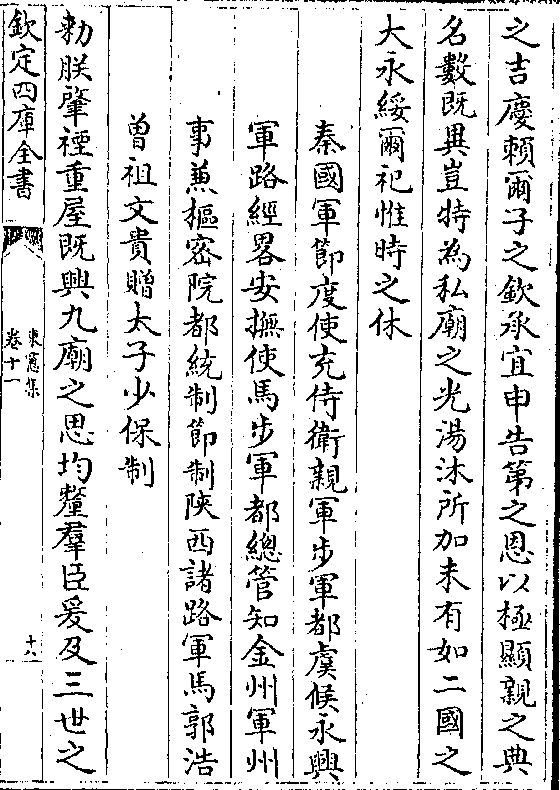 之吉慶頼爾子之欽承宜申告第之恩以極顯親之典
名數既異豈特為私廟之光湯沐所加未有如二國之
大永綏爾祀惟時之休
秦國軍節度使充侍衛親軍步軍都虞候永興
軍路經畧安撫使馬步軍都總管知金州軍州
事兼樞密院都統制節制陜西諸路軍馬郭浩
曽祖文貴贈太子少保制
勅朕肇禋重屋既興九廟之思均釐羣臣爰及三世之
欽定四庫全書
東窻集
卷十一
十八